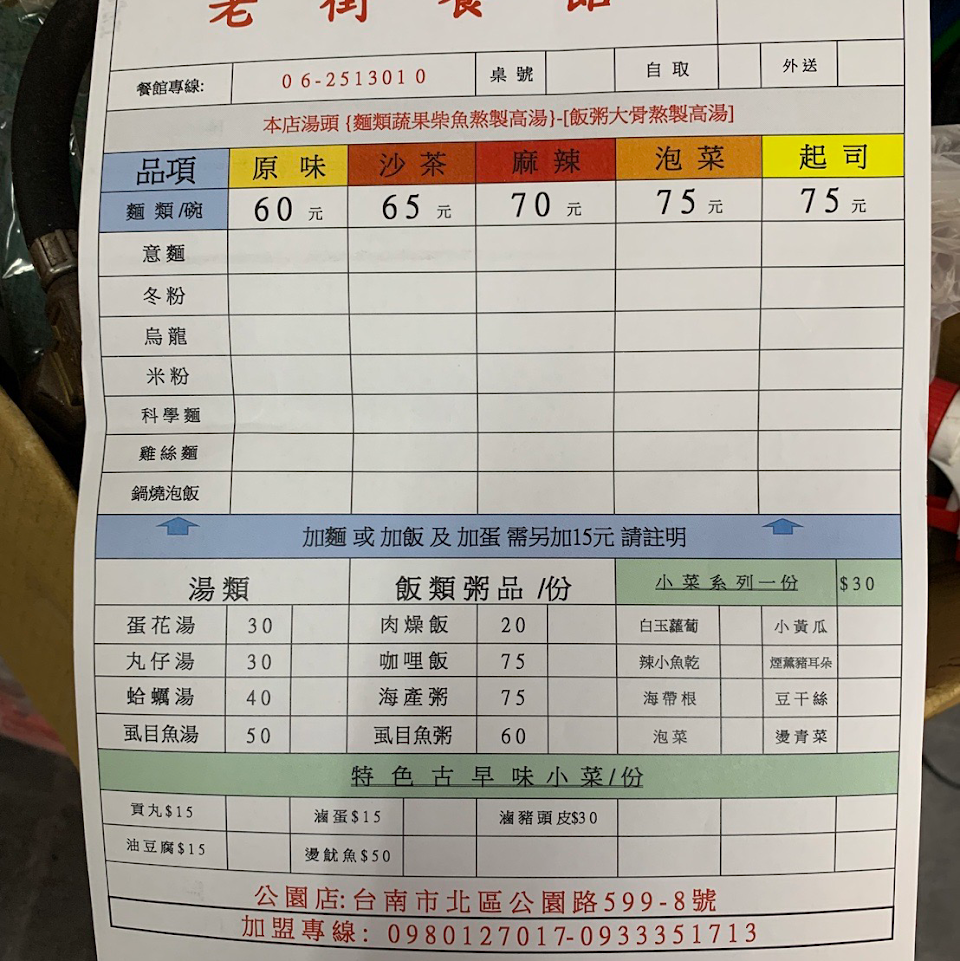 老街餐館
餐館專線: 06-2513010 桌號 自取 外送
本店湯頭{麵類蔬果柴魚熬製高湯}-[飯粥大骨熬製高湯]
品項 原味 沙茶 麻辣 泡菜 起司
麵類/碗 60元 65元 70元 75元 75元
意麵
冬粉
烏龍
米粉
科學麵
雞絲麵
鍋燒泡飯
加麵 或 加飯 及 加蛋 需另加15元 請註明
湯類 飯類粥品/份 小菜系列一份 $30
蛋花湯 30 肉燥飯 20 白玉蘿蔔 小黃瓜
丸仔湯 30 咖哩飯 75 辣小魚乾 煙薰豬耳朵
蛤蠣湯 40 海產粥 75 海帶根 豆干絲
虱目魚湯 50 虱目魚粥 60 泡菜 燙青菜
特色古早味小菜/份
貢丸$15 滷蛋$15 滷豬頭皮$30
油豆腐$15 燙魷魚$50
公園店:台南市北區公園路599-8號
加盟專線: 0980127017-0933351713